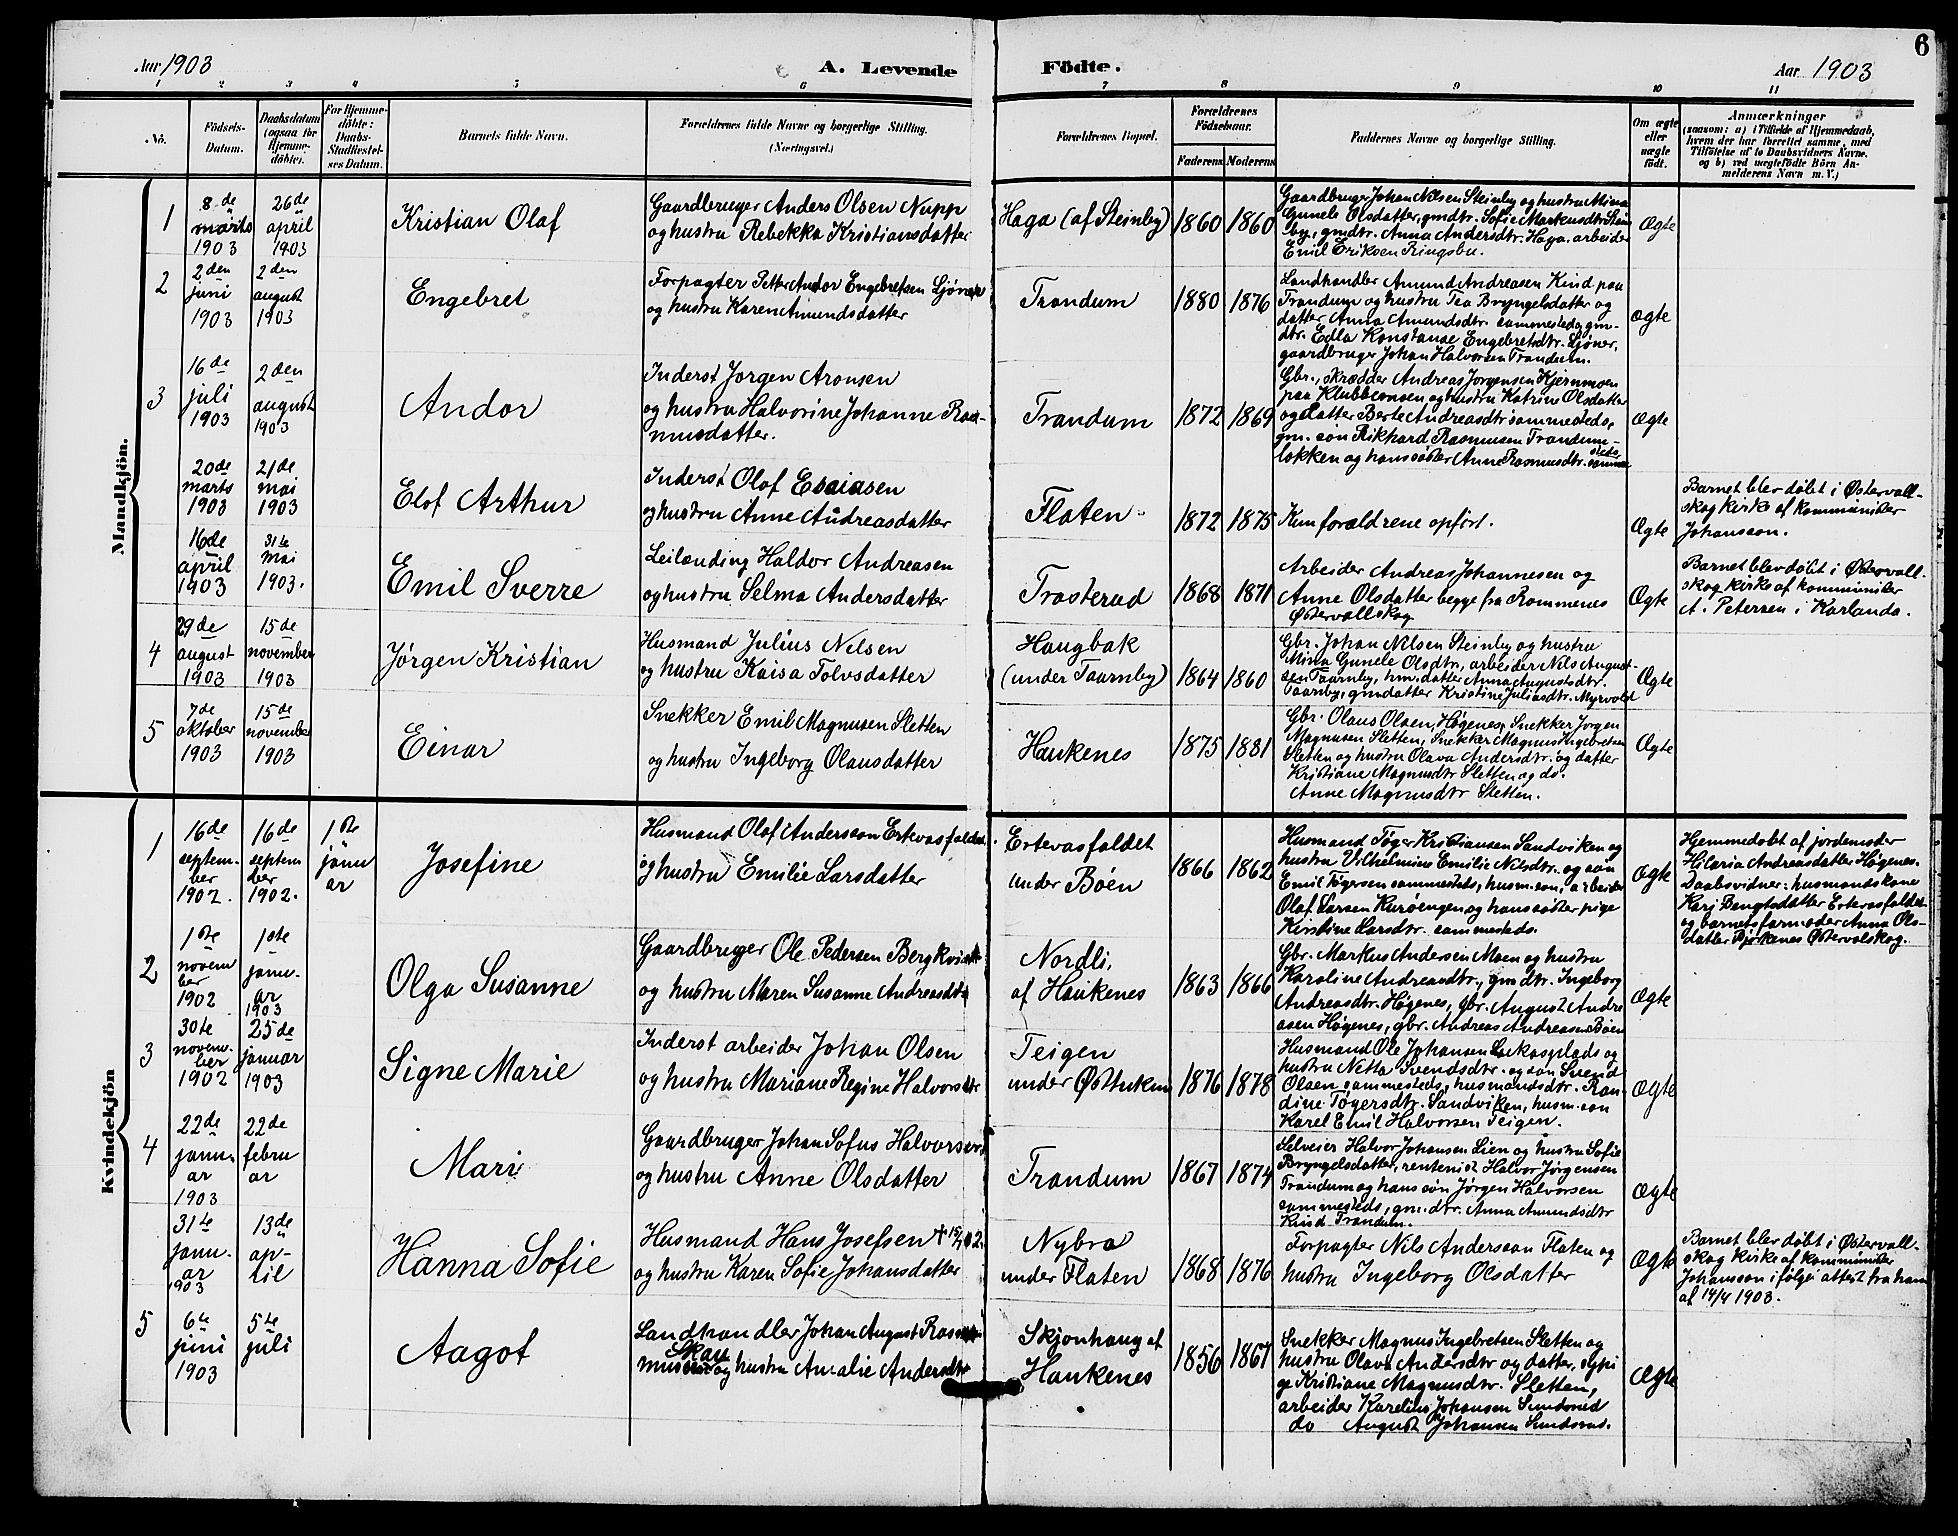 Aar 1903
A. Levende
Födte.
Aar 1903
6
1 2 3 4 5 6 7 8 9 10 11
No.
Födsels-
Datum.
Daabsdatum
(ogsaa for
Hjemme-
döbte).
For Hjemme-
döbte:
Daabs-
Stadfæstel-
ses Datum.
Barnets fulde Navn.
Forældrenes fulde Navne og borgerlige Stilling.
(Næringsvei.)
Forældrenes Bopæl.
Forældrenes
Födselsaar.
Faderens
Moderens
Faddernes Navne og borgerlige Stilling.
Om ægte
eller
uægte
födt.
Anmærkninger
(saasom: a) i Tilfælde af Hjemmedaab,
hvem der har forrettet samme, med
Tilföielse af to Daabsvidners Navne.
og b) ved uægtefödte Börn An-
melderens Navn m. V.)
Mandkjön.
1
8de
marts
1903
26de
april
1903
Kristian Olaf
Gaardbruger Anders Olsen Nupp
og hustru Rebekka Kristiansdatter
Haga (af Steinby)
1860
1860
Gaardbruger Johan Nilsen Steinby og hustru Mina
Gunele Olsdatter, gmdtr. Sofie Markusdtr Stein
by, gmdtr. Anna Andersdtr. Haga, arbeider
Emil Eriksen Ringsbu.
Ægte
2
2den
juni
1903
2den
august
1903
Engebret
Forpagter Petter Andor Engebretsen Sjöner
og hustru Karen Amundsdatter
Trandum
1880
1876
Landhandler Amund Andreasen Kind paa
Trandum og hustru Tea Bryngelsdatter og
datter Anna Amundsdtr sammesteds, gm-
dtr. Edla Konstanse Engebretsdtr. Sjöner,
gaardbruger Johan Halvorsen Trandum.
ægte
3
16de
juli
1903
2den
august
1903
Andor
Inderst Jorgen Aronsen
og hustru Halvorine Johanne Ras-
musdatter.
Trandum
1872
1869
Gbr., skrædder Andreas Jorgensen Kjernmoen
paa Klubbemoen og hustru Katrine Olsdatter
og datter Berte Andreasdtr sammesteds,
gm. sön Rikhard Rasmussen Trandum-
lokken og hans söster Anne Rasmusdtr. samme
steds
Ægte
20de
marts
1903
21de
mai
1903
Elof Arthur
Inderst Olof Esaiasen
og hustru Anne Andreasdatter
Flaten.
1872
1875
Kun forældrene opfört.
Ægte
Barnet blev döbt i Østervall-
skog kirke af kommunister
Johansson.
16de
april
1903
31te
mai
1903.
Emil Sverre
Leilending Haldor Andreasen
og hustru Selma Andersdatter
Trosterud
1868
1871
Arbeider Andreas Johannesen og
Anne Olsdatter begge fra Rommenes
Østervallskog
Ægte
Barnet blev döbt i Østervall-
skog kirke af kommunister
A. Petersen i Karlanda.
4
29de
august
1903
15de
november
1903
Jørgen Kristian
Husmand Julius Nilsen
og hustru Kaisa Tolvsdatter
Haugbak
(under Taarnby)
1864
1860
Gbr. Johan Nilsen Steinby og hustru
Mina Gunele Olsdtr, arbeider Nils August-
sen Taarnby, hm. datter Anna Augustsdtr.
Taarnby, gmdatter Kristine Juliasdtr. Myrvold
Ægte
5
7de
oktober
1903
15de
november
1903
Einar
Snekker Emil Magnusen Sletten
og hustru Ingeborg Olausdatter
Haukenes
1875
1881
Gbr. Olaus Olsen Høgenes, Snekker Jorgen
Magnusen Sletten, Snekker Magnus Ingebretsen
Sletten og hustru Olava Andersdtr. og datter
Kristiane Magnusdtr Sletten og do.
Anne Magnusdtr Sletten.
Ægte
Kvindekjön
1
16de
septem-
ber
1902.
16de
septem
ber
1902.
1ste
janu
ar
Josefine
Husmand Olof Andersson Ertevasfaldet
og hustru Emilie Larsdatter
Ertevasfaldet
under Böen
1866
1862
Husmand Töger Kristiansen Sandviken og
hustru Vilhelmine Emilie Nilsdtr. og sön
Emil Tögersen sammesteds, husm.sön, arbeider
Olaf Larsen Kuröengen og hans söster pige
Kirstine Larsdtr. sammesteds.
Ægte
Hjemmedobt af jordemoder
Hilaria Andreasdatter Høgenes.
Daabsvidner: husmandskone
Kari Bengtsdatter Ertevasfaldet
og barnets farmoder Anna Ols-
datter Bjørkenes Østervalskog.
2
1ste
novem
ber
1902
1ste
janu-
ar
1903
Olga Susanne
Gaardbruger Ole Pedersen Bergkvist
og hustru Maren Susanne Andreasdtr
Nordli,
af Haukenes
1863
1866
Gbr. Markus Andersen Moen og hustru
Karoline Andreasdtr., gmdtr. Ingeborg
Andreasdtr. Høgenes, gbr. August Andre
asen Høgenes, gbr. Andreas Andreasen Böen
Ægte
3
30te
novem-
ber
1902
25de
januar
1903
Signe Marie
Inderst arbeider Johan Olsen
og hustru Mariane Regine Halvorsdtr
Teigen
under Østtukun
1876
1878
Husmand Ole Johansen Lokasplads og
hustru Netta Svendsdtr. og sön Svend
Olsen sammesteds, husmandsdtr. Ran-
dine Tögersdtr. Sandviken, husm. sön
Karel Emil Halvorsen Teigen.
Ægte
4
22de
janu-
ar
1903
22de
febru
ar
Mari
Gaardbruger Johan Sofus Halvorsen
og hustru Anne Olsdatter
Trandum
1867
1874
Selveier Halvor Johansen Lien og hustru Sofie
Bryngelsdatter, rentenist Halvor Jørgensen
Trandum og hans sön Jørgen Halvorsen
sammesteds, gm. dtr. Anna Amundsdtr
Kind Trandum.
Ægte
31te
janu-
ar
1903
13de
ap-
ril
Hanna Sofie
Husmand Hans Josefsen + 15/7 02.
og hustru Karen Sofie Johansdatter
Nybra
under Flaten
1868
1876
Forpagter Nils Andersson Flaten og
hustru Ingeborg Olsdatter
Ægte
Barnet blev döbt i Østervall-
skog kirke af kommunister
Johansson ifølge attest fra ham
af 14/4 1903.
5
6te
juni
1903
5te
juli
Aagot
Landhandler Johan August Rasmus
Skau
og hustru Amalie Andersdtr
Skjonhaug af
Haukenes
1856
1867
Snekker Magnus Ingebretsen Sletten og
hustru Olava Andersdtr og datter, sypi
ge Kristiane Magnusdtr. Sletten,
arbeider Karelius Johansen Sundsrud
do August Johansen Sundsrud.
Ægte